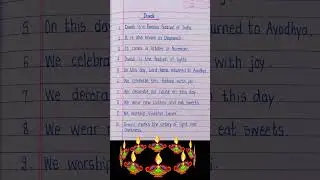 Diwali
1. Diwali is a famous festival of India.
2. It is also known as Deepawali.
3. It comes in October or November.
4. Diwali is the festival of lights.
5. On this day, Lord Rama returned to Ayodhya.
6. We celebrate this festival with joy.
7. We decorate our house on this day.
8. We wear new clothes and eat sweets.
9. We worship Goddess Laxmi.
10. Diwali marks the victory of light over
darkness.
5. On this day
6- We celebra
7- We decora
8- We wear
9- We worship
urned to Ayodhya
with joy.
this day.
eat sweets.